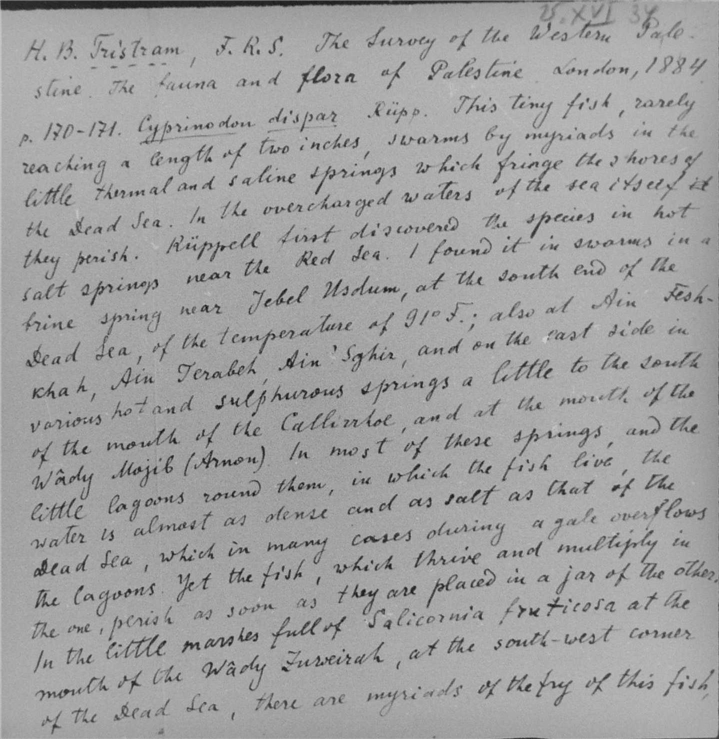 25. XVI 34
H. B. Tristram, F.R.S. The Survey of the Western Pale-
stine. The fauna and flora of Palestine. London, 1884
p. 170-171. Cyprinodon dispar Rüpp. This tiny fish, rarely
reaching a length of two inches, swarms by myriads in the
little thermal and saline springs which fringe the shores of
the Dead Sea. In the overcharged waters of the sea itself it
they perish. Rüppell first discovered the species in hot
salt springs near the Red Sea. I found it in swarms in a
brine spring near Jebel Usdum, at the south end of the
Dead Sea, of the temperature of 91° F.; also at Ain Fesh-
khah, Ain Terabeh, Ain Sghir, and on the east side in
various hot and sulphurous springs a little to the south
of the mouth of the Callirrhoe, and at the mouth of the
Wâdy Mojib (Arnon). In most of these springs, and the
little lagoons round them, in which the fish live, the
water is almost as dense and as salt as that of the
Dead Sea, which in many cases during a gale overflows
the lagoons. Yet the fish, which thrive and multiply in
the one, perish as soon as they are placed in a jar of the other.
In the little marshes full of Salicornia fruticosa at the
mouth of the Wâdy Zuweirah, at the south-west corner
of the Dead Sea, there are myriads of the fry of this fish,